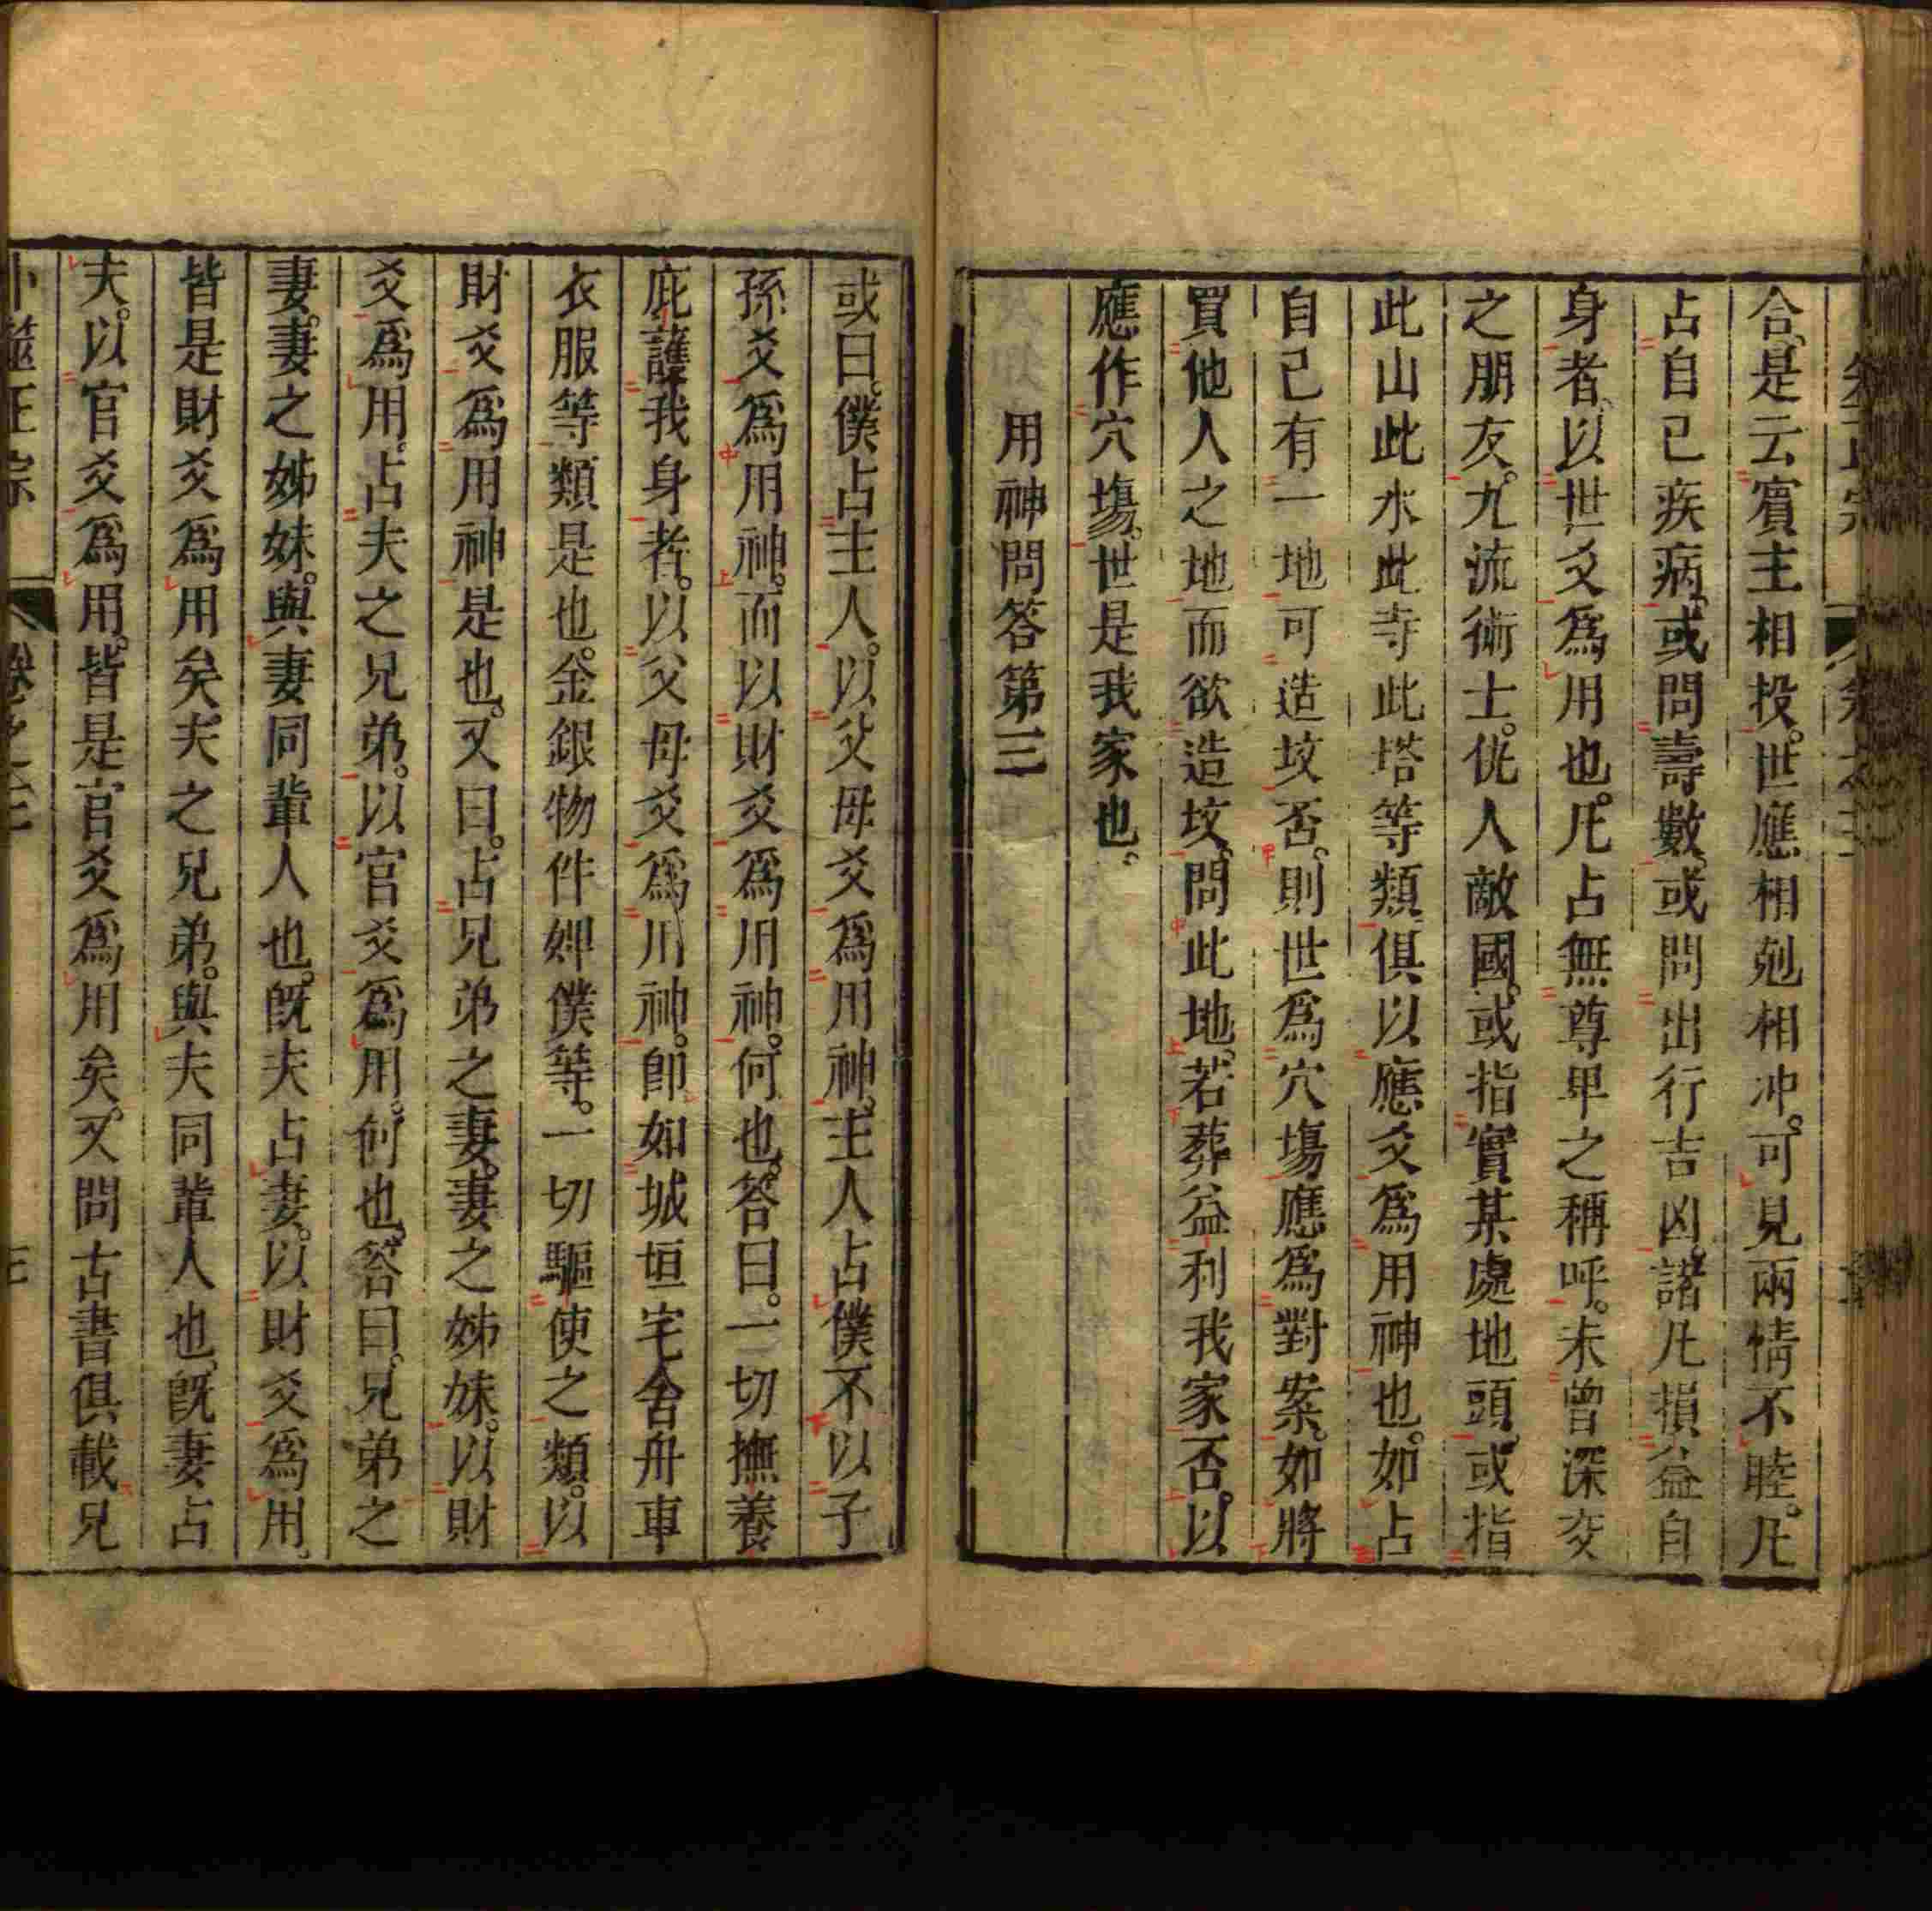 合是云賓主相投世應相剋相冲可見兩情不睦凡
占自己疾病或問壽數或問出行吉凶諸凡損益自
身者以世爻爲用也凡占無尊卑之稱呼未曾深交
之朋友九流術士仇人敵國或指實某處地頭或指
此山此水此寺此塔等類俱以應爻爲用神也如占
自己有一地可造坟否則世爲穴塲應爲對案如將
買他人之地而欲造坟問此地若葬益利我家否以
應作穴塲世是我家也
用神問答第三
或曰僕占主人以父母爻爲用神主人占僕不以子
孫爻爲用神而以財爻爲用神何也答曰一切撫養
庇護我身者以父母爻爲用神卽如城垣宅舍舟車
衣服等類是也金銀物件婢僕等一切驅使之類以
財爻爲用神是也又曰占兄弟之妻妻之姊妹以財
爻爲用占夫之兄弟以官爻爲用何也答曰兄弟之
妻妻之姊妹與妻同輩人也旣夫占妻以財爻爲用
皆是財爻爲用矣夫之兄弟與夫同輩人也旣妻占
夫以官爻爲用皆是官爻爲用矣又問古書俱載兄
卜筮正宗 卷之三 三